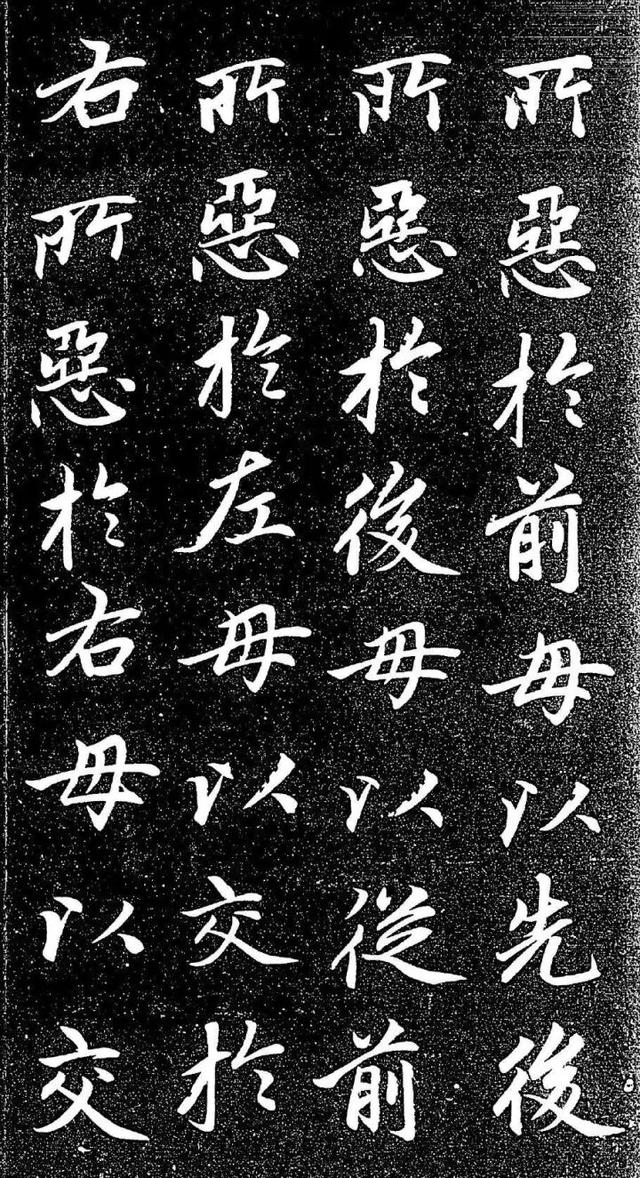 所惡於前毋以先後
所惡於後毋以從前
所惡於左毋以交於
右所惡於右毋以交